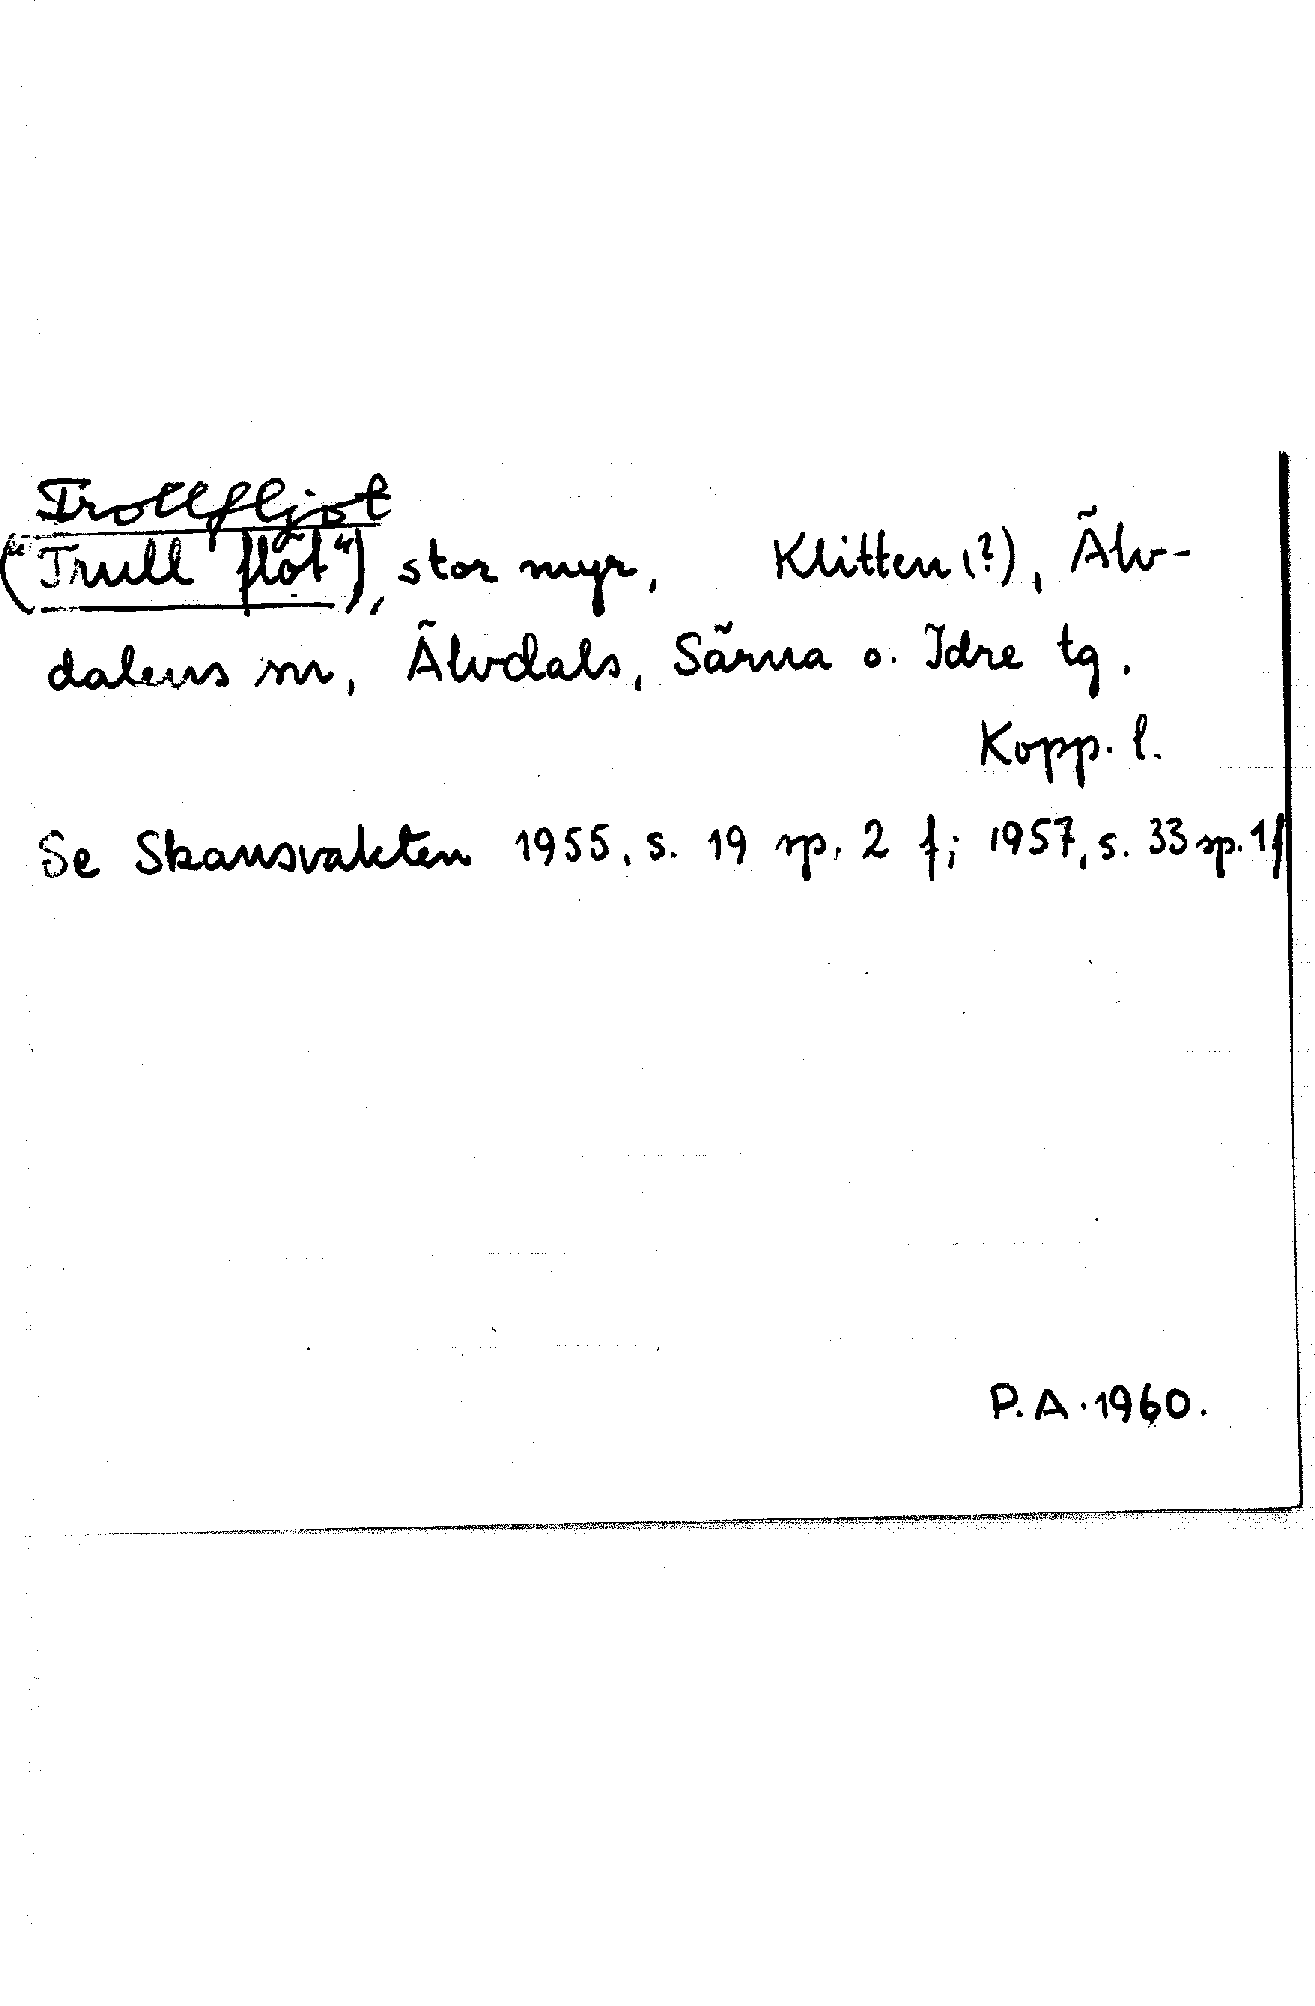 Trollfljot
("Trull flöt"), stor myr, Klitten (?), Älv-
dalens sn, Älvdals, Särna o. Idre tg.
Kopp. l.
Se Skansvakten 1955, s. 19 sp. 2 f; 1957, s. 33 sp. 1f
P.A. 1960.